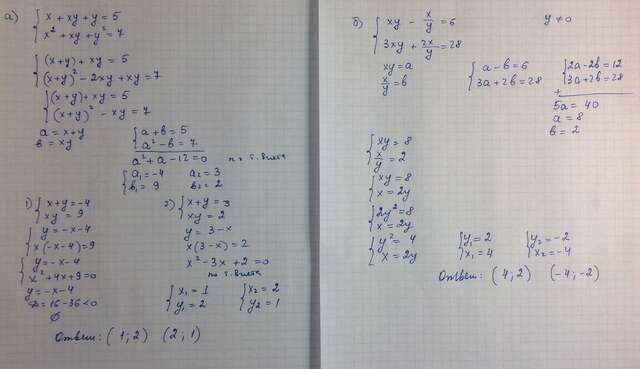 а) { x + xy + y = 5
x² + xy + y² = 7
{ (x+y) + xy = 5
(x+y)² - 2xy + xy = 7
{ (x+y) + xy = 5
(x+y)² - xy = 7
a = x+y
b = xy
{ a + b = 5
a² - b = 7
a² + a - 12 = 0 по т. Виета
{ a₁ = -4 a₂ = 3
b₁ = 9 b₂ = 2
1) { x + y = -4
xy = 9
{ y = -x-4
x(-x-4) = 9
{ y = -x-4
x² + 4x + 9 = 0
y = -x-4
D = 16-36 < 0
∅
2) { x + y = 3
xy = 2
y = 3-x
x(3-x) = 2
x² - 3x + 2 = 0
по т. Виета
{ x₁ = 1 { x₂ = 2
y₁ = 2 y₂ = 1
Ответ: (1; 2) (2; 1)
б) { xy - x/y = 6 y ≠ 0
3xy + 2x/y = 28
xy = a
x/y = b
{ a - b = 6
3a + 2b = 28
{ 2a - 2b = 12
3a + 2b = 28
+
5a = 40
a = 8
b = 2
{ xy = 8
x/y = 2
{ xy = 8
x = 2y
{ 2y² = 8
x = 2y
{ y² = 4
x = 2y
{ y₁ = 2 { y₂ = -2
x₁ = 4 x₂ = -4
Ответ: (4; 2) (-4; -2)